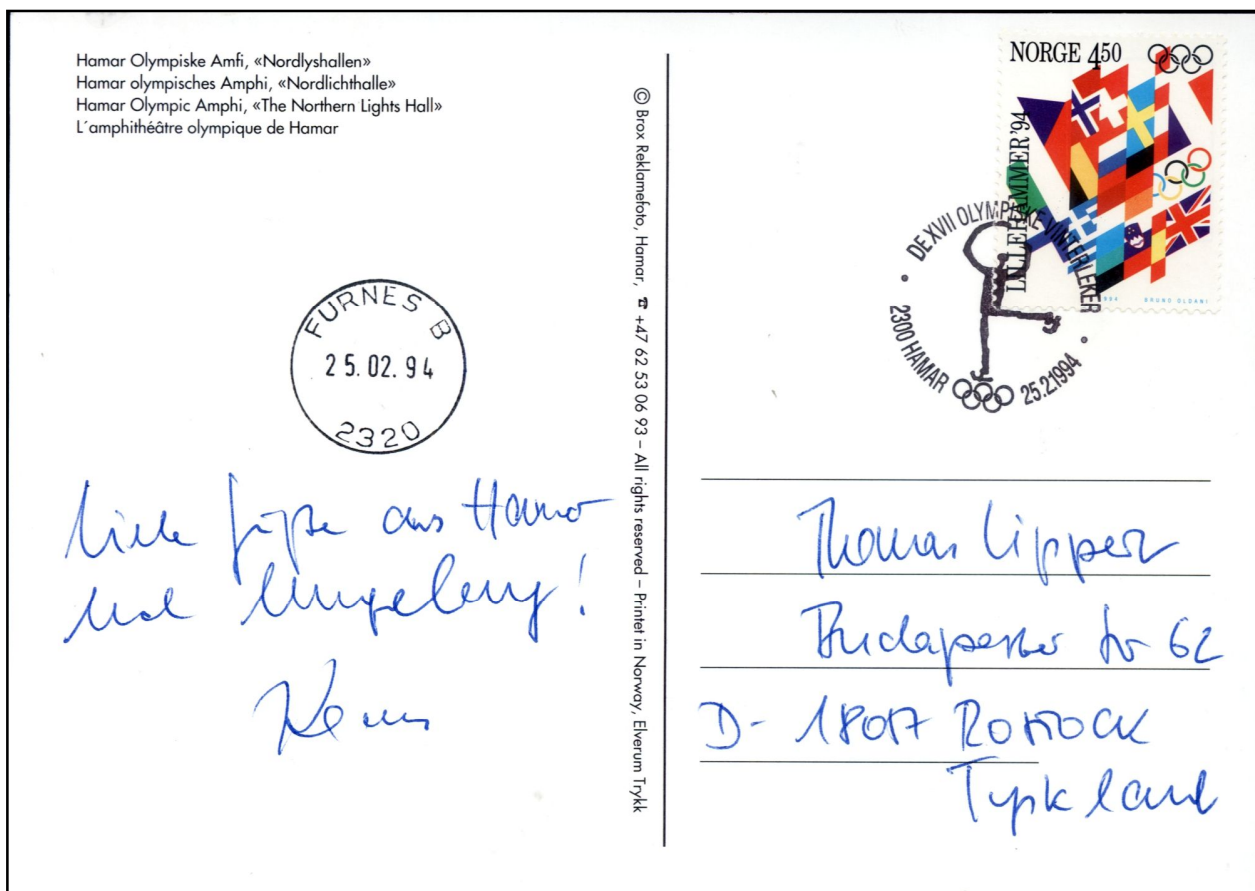 Hamar Olympiske Amfi, «Nordlyshallen»
Hamar olympisches Amphi, «Nordlichthalle»
Hamar Olympic Amphi, «The Northern Lights Hall»
L´amphithéâtre olympique de Hamar
FURNES B
25.02.94
2320
Viele Grüße aus Hamar
und Umgebung!
© Brox Reklamefoto, Hamar, ☎ +47 62 53 06 93 – All rights reserved – Printet in Norway, Elverum Trykk
NORGE 450
LILLEHAMMER'94
BRUNO OLDANI
DE XVII OLYMPISKE VINTERLEKER
2300 HAMAR 25.2.1994
Thomas Lippert
Budapester Str 62
D- 18057 ROSTOCK
Tyskland